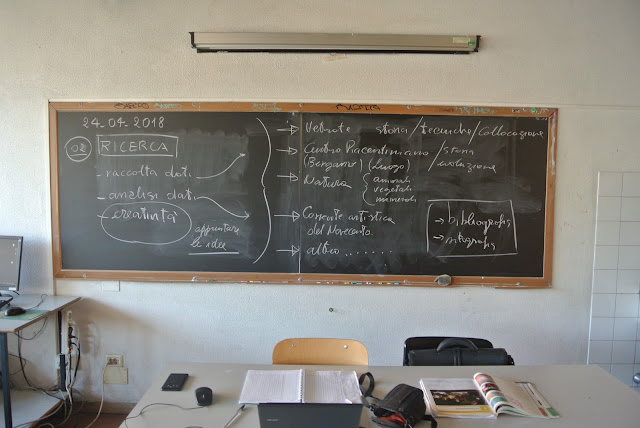 24-04-2018
02 RICERCA
- raccolta dati
- analisi dati
- creatività
appuntare
le idee
→ Vetrate storia / tecniche / collocazione
→ Centro Piacentiniano / storia
(Bergamo) (luogo) / evoluzione
→ Natura { animali
vegetali
minerali
→ Corrente artistica
del Novecento
→ altro ........
→ bibliografia
→ sitografia